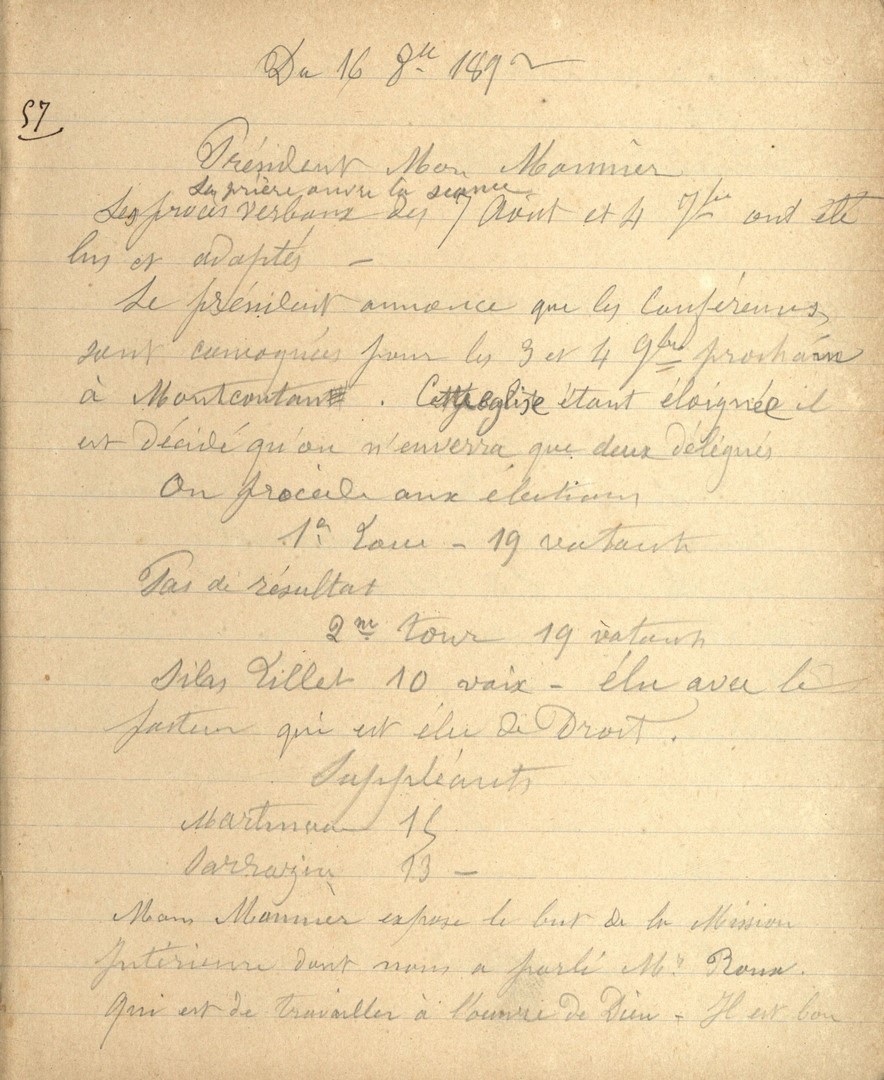 Du 16 8bre 1892
57
Président Mon Monnier
La prière ouvre la séance
Les procès verbaux des 7 Août et 4 7bre ont été
lus et adoptés –
Le président annonce que les Conférences
sont convoquées pour les 3 et 4 9bre prochain
à Montcoutant . Cette eglise étant éloignée il
est décidé qu'on n'enverra que deux délégués
On procède aux élections
1er Tour – 19 votants
Pas de résultat
2me tour 19 votants
Silas Lillet 10 voix – élu avec le
pasteur qui est élu de Droit.
Suppléants
Martineau 15
Sarrazin 13 –
Mons Monnier expose le but de la Mission
Intérieure dont nous a parlé Mr Roux.
qui est de travailler à l'œuvre de Dieu – Il est bon